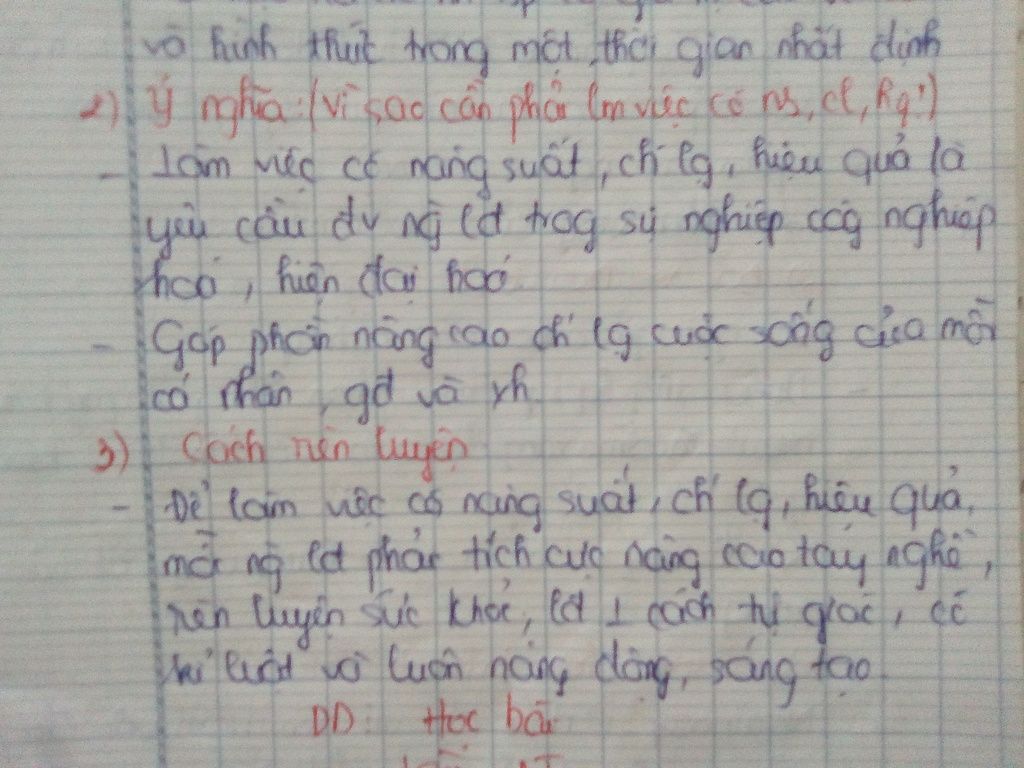 và hình thức trong một thời gian nhất định
2) Ý nghĩa: (vì sao cần phải lm việc có ns, cl, hq?)
- Làm việc có năng suất, ch lg, hiệu quả là
yêu cầu đv ng lđ trog sự nghiệp côg nghiệp
hoá, hiện đại hoá
- Góp phần nâng cao ch lg cuộc sống của mỗi
cá nhân, gđ và xh
3) Cách rèn luyện
- Để làm việc có năng suất, ch lg, hiệu quả,
mỗi ng lđ phải tích cực nâng cao tay nghề,
rèn luyện sức khỏe, lđ 1 cách tự giác, có
kỉ luật và luôn năng động, sáng tạo
DD: Học bài